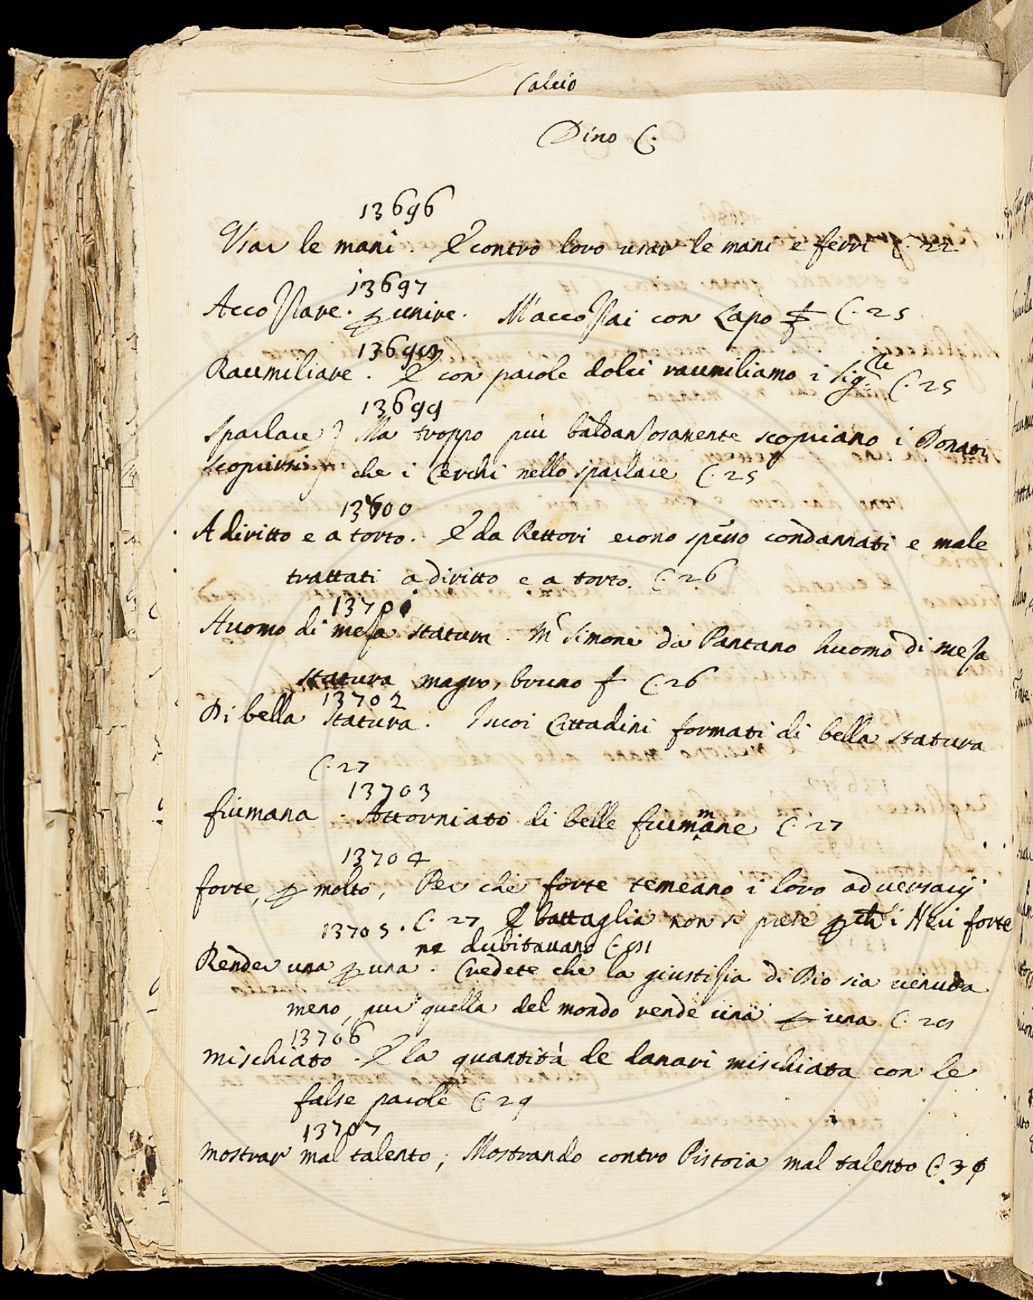 Calcio
Dino C.
13696
Usar le mani. E contro loro usar le mani e ferri C. 22.
13697
Accostare. p unire. M'accostai con Lapo C. 25
13698
Raumiliare. E con parole dolci raumiliamo i Sig.
C. 25
13699
Sparlare Ma troppo più baldanzosamente scopriano i Donati
scoprirsi che i Cerchi nello sparlare C. 25
13700
A diritto e a torto. E da Rettori erono spesso condannati e male
trattati a diritto e a torto. C. 26
13701
Huomo di mesa statura. Simone da Pantano huomo di mesa
statura magro, bruno C. 26
13702
Di bella statura. Cittadini formati di bella statura
C. 27
13703
fiumana. Attorniato di belle fiummane C. 27
13704
forte, p molto, Per che forte temeano i loro adversarij
C. 27 E battaglia non si prese i Neri forte
13705.
ne dubitavano C.
Render una p una. Credete che la giustisia di Dio sia venuta
meno, pur quella del mondo rende una p una C. 29
13706
mischiato. E la quantità de danari mischiata con le
false parole C. 29
13707
mostrar mal talento; Mostrando contro Pistoia mal talento C. 30